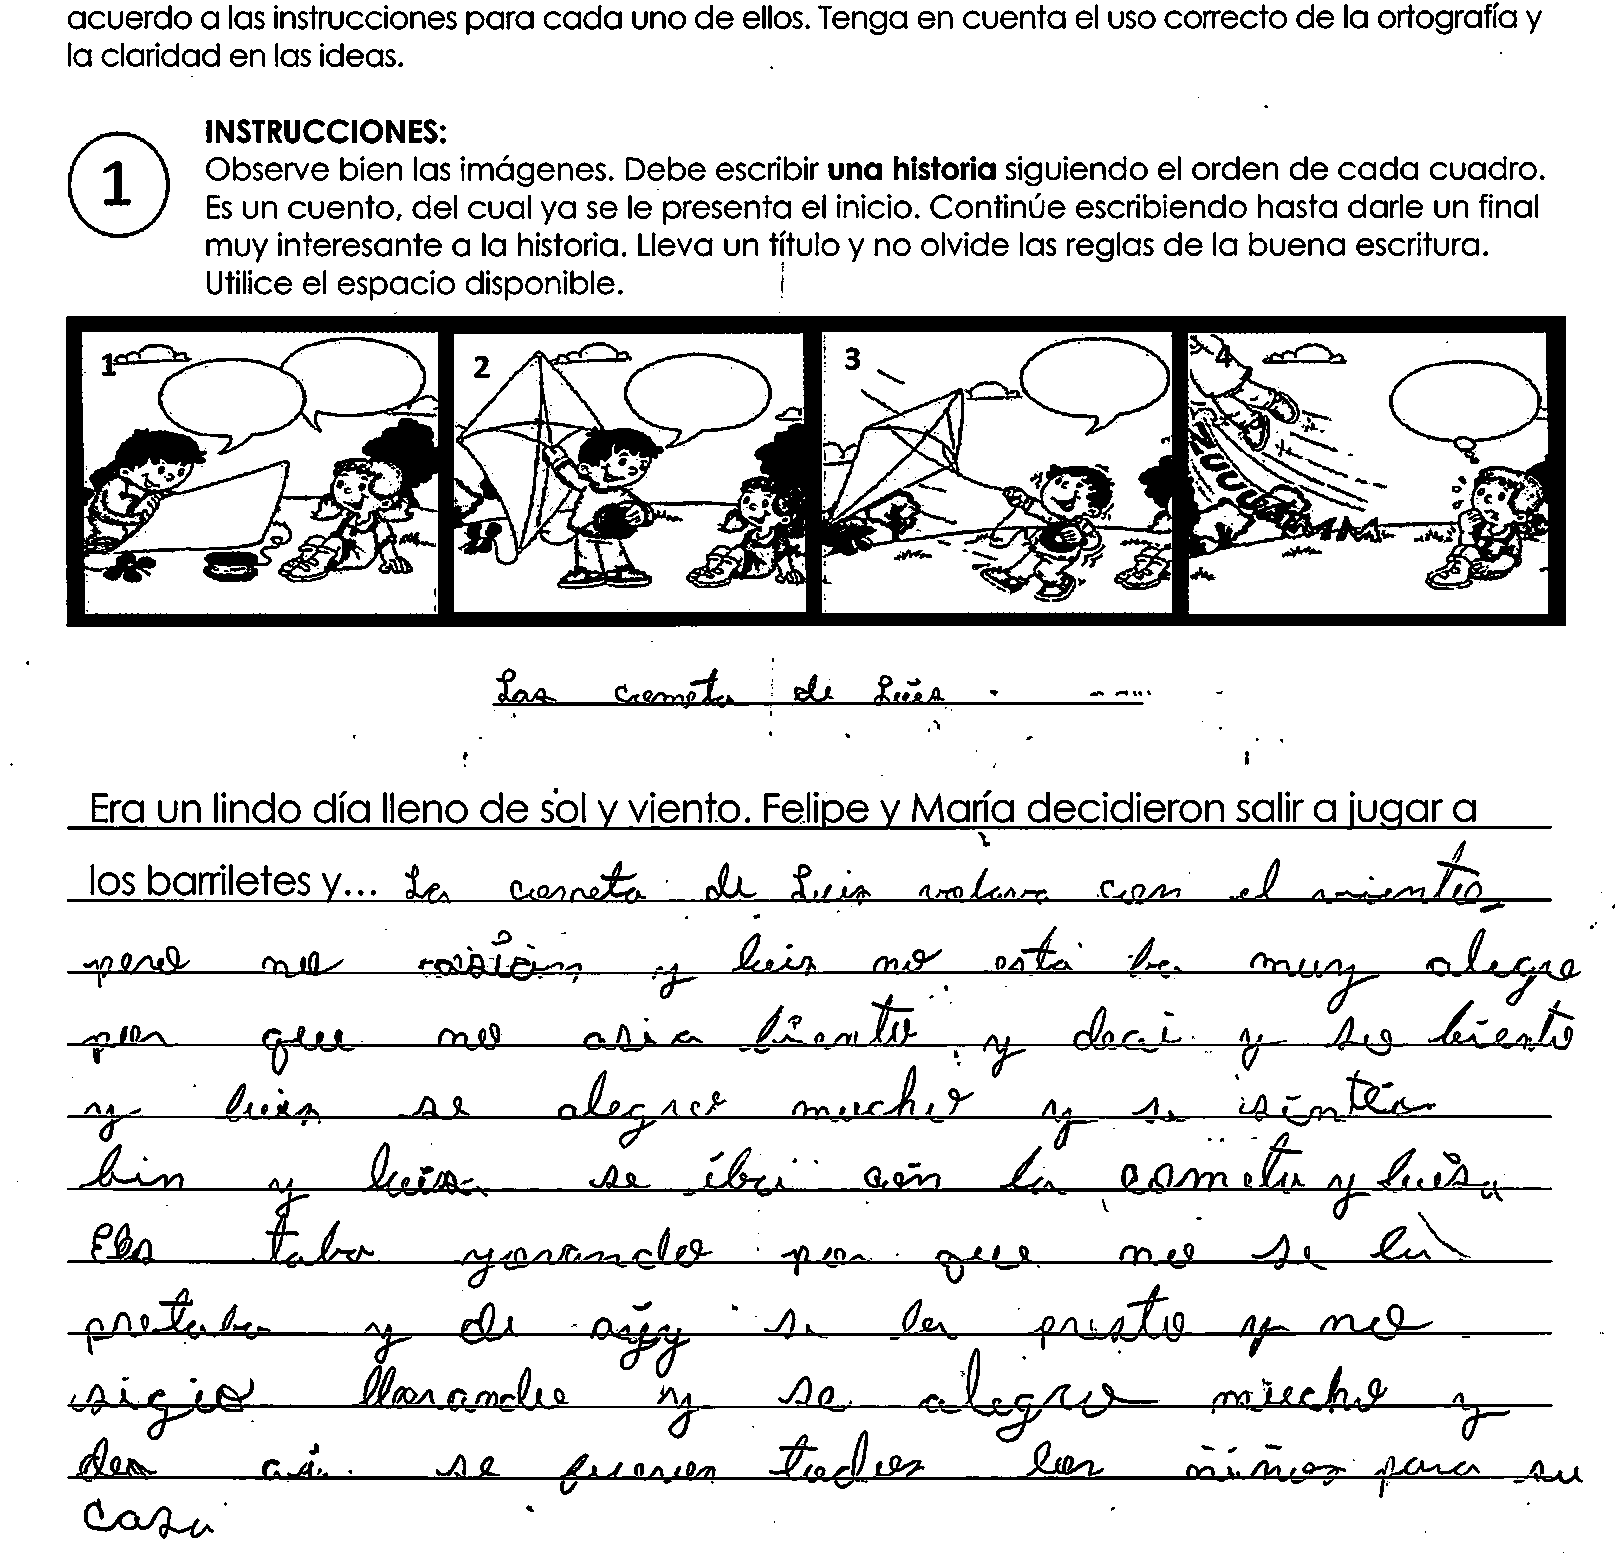 acuerdo a las instrucciones para cada uno de ellos. Tenga en cuenta el uso correcto de la ortografía y
la claridad en las ideas.
1
INSTRUCCIONES:
Observe bien las imágenes. Debe escribir una historia siguiendo el orden de cada cuadro.
Es un cuento, del cual ya se le presenta el inicio. Continúe escribiendo hasta darle un final
muy interesante a la historia. Lleva un título y no olvide las reglas de la buena escritura.
Utilice el espacio disponible.
1 2 3 4
Las cometa de Luis.
Era un lindo día lleno de sol y viento. Felipe y María decidieron salir a jugar a
los barriletes y... La cometa de Luis volava con el viento
pero no y luis no esta ba muy alegre
por que no asia biento y deci y so biento
y luis se alegro mucho y se sintia
bin y luis se iba con la cometa y luisa
Els taba yorando por que no se la
pretaba y de ayy se la presto y no
sigio llorando y se alegro mucho y
den ai se fueron todos los niños para su
casa